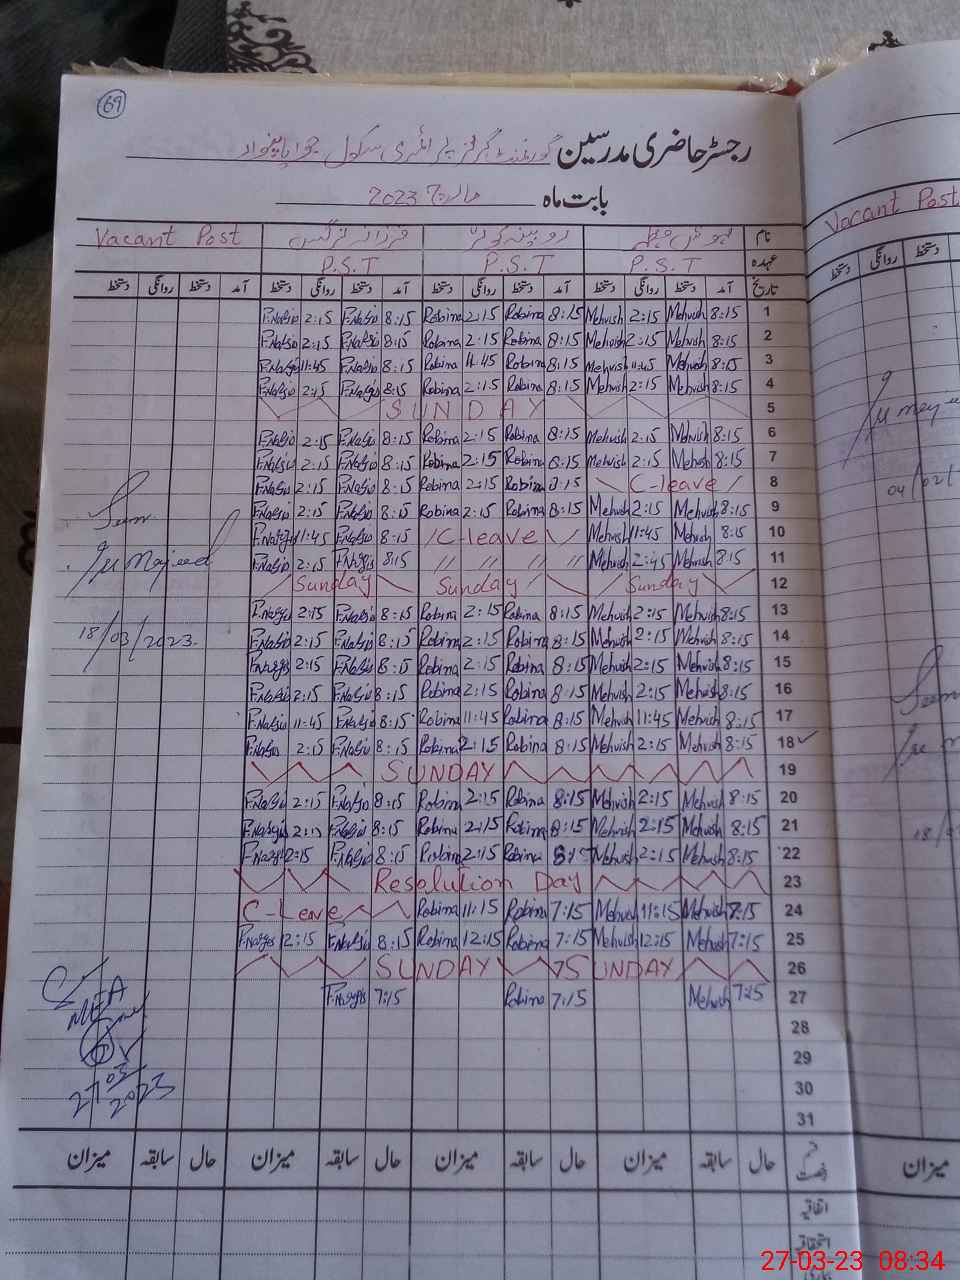 69
رجسٹر حاضری مدرسین گورنمنٹ گرلز پرائمری سکول
بابت ماہ مارچ 2023
نام Vacant Post
عہدہ P.S.T P.S.T P.S.T
تاریخ آمد دستخط روانگی دستخط آمد دستخط روانگی دستخط آمد دستخط روانگی دستخط آمد دستخط روانگی دستخط
F.Nargis 2:15 F.Nargis 8:15 Robina 2:15 Robina 8:15 Mehvish 2:15 Mehvish 8:15 1
F.Nargis 2:15 F.Nargis 8:15 Robina 2:15 Robina 8:15 Mehvish 2:15 Mehvish 8:15 2
F.Nargis 11:45 F.Nargis 8:15 Robina 11:45 Robina 8:15 Mehvish 11:45 Mehvish 8:15 3
F.Nargis 2:15 F.Nargis 8:15 Robina 2:15 Robina 8:15 Mehvish 2:15 Mehvish 8:15 4
SUNDAY 5
F.Nargis 2:15 F.Nargis 8:15 Robina 2:15 Robina 8:15 Mehvish 2:15 Mehvish 8:15 6
F.Nargis 2:15 F.Nargis 8:15 Robina 2:15 Robina 8:15 Mehvish 2:15 Mehvish 8:15 7
F.Nargis 2:15 F.Nargis 8:15 Robina 2:15 Robina 8:15 C-leave 8
F.Nargis 2:15 F.Nargis 8:15 Robina 2:15 Robina 8:15 Mehvish 2:15 Mehvish 8:15 9
F.Nargis 11:45 F.Nargis 8:15 C-leave Mehvish 11:45 Mehvish 8:15 10
F.Nargis 2:15 F.Nargis 8:15 // // // // Mehvish 2:45 Mehvish 8:15 11
Sunday Sunday Sunday 12
F.Nargis 2:15 F.Nargis 8:15 Robina 2:15 Robina 8:15 Mehvish 2:15 Mehvish 8:15 13
F.Nargis 2:15 F.Nargis 8:15 Robina 2:15 Robina 8:15 Mehvish 2:15 Mehvish 8:15 14
F.Nargis 2:15 F.Nargis 8:15 Robina 2:15 Robina 8:15 Mehvish 2:15 Mehvish 8:15 15
F.Nargis 2:15 F.Nargis 8:15 Robina 2:15 Robina 8:15 Mehvish 2:15 Mehvish 8:15 16
F.Nargis 11:45 F.Nargis 8:15 Robina 11:45 Robina 8:15 Mehvish 11:45 Mehvish 8:15 17
F.Nargis 2:15 F.Nargis 8:15 Robina 2:15 Robina 8:15 Mehvish 2:15 Mehvish 8:15 18
SUNDAY 19
F.Nargis 2:15 F.Nargis 8:15 Robina 2:15 Robina 8:15 Mehvish 2:15 Mehvish 8:15 20
F.Nargis 2:15 F.Nargis 8:15 Robina 2:15 Robina 8:15 Mehvish 2:15 Mehvish 8:15 21
F.Nargis 2:15 F.Nargis 8:15 Robina 2:15 Robina 8:15 Mehvish 2:15 Mehvish 8:15 22
Resolution Day 23
C-Leve Robina 11:15 Robina 7:15 Mehvish 11:15 Mehvish 7:15 24
F.Nargis 12:15 F.Nargis 8:15 Robina 12:15 Robina 7:15 Mehvish 12:15 Mehvish 7:15 25
SUNDAY SUNDAY 26
F.Nargis 7:15 Robina 7:15 Mehvish 7:15 27
28
29
30
31
Majeed
18/03/2023.
MEA
27/03/2023
حال سابقہ میزان حال سابقہ میزان حال سابقہ میزان حال سابقہ میزان
اتفاقیہ
استحقاقیہ
Vacant Post
آمد دستخط روانگی دستخط
04/02/
18/
میزان
27-03-23 08:34